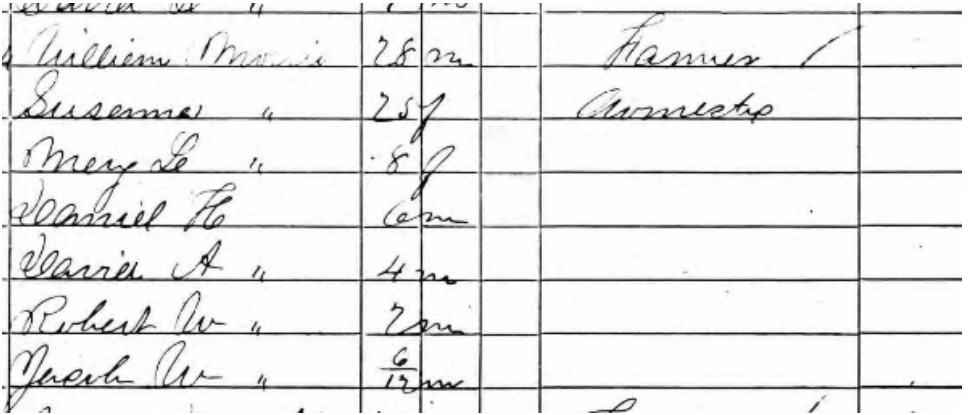 William Morris 28 m Farmer /
Susanna " 25 f Domestic
Mary Le " 8 f
Daniel H 6 m
David A " 4 m
Robert W " 2 m
Jacob W " 6/12 m